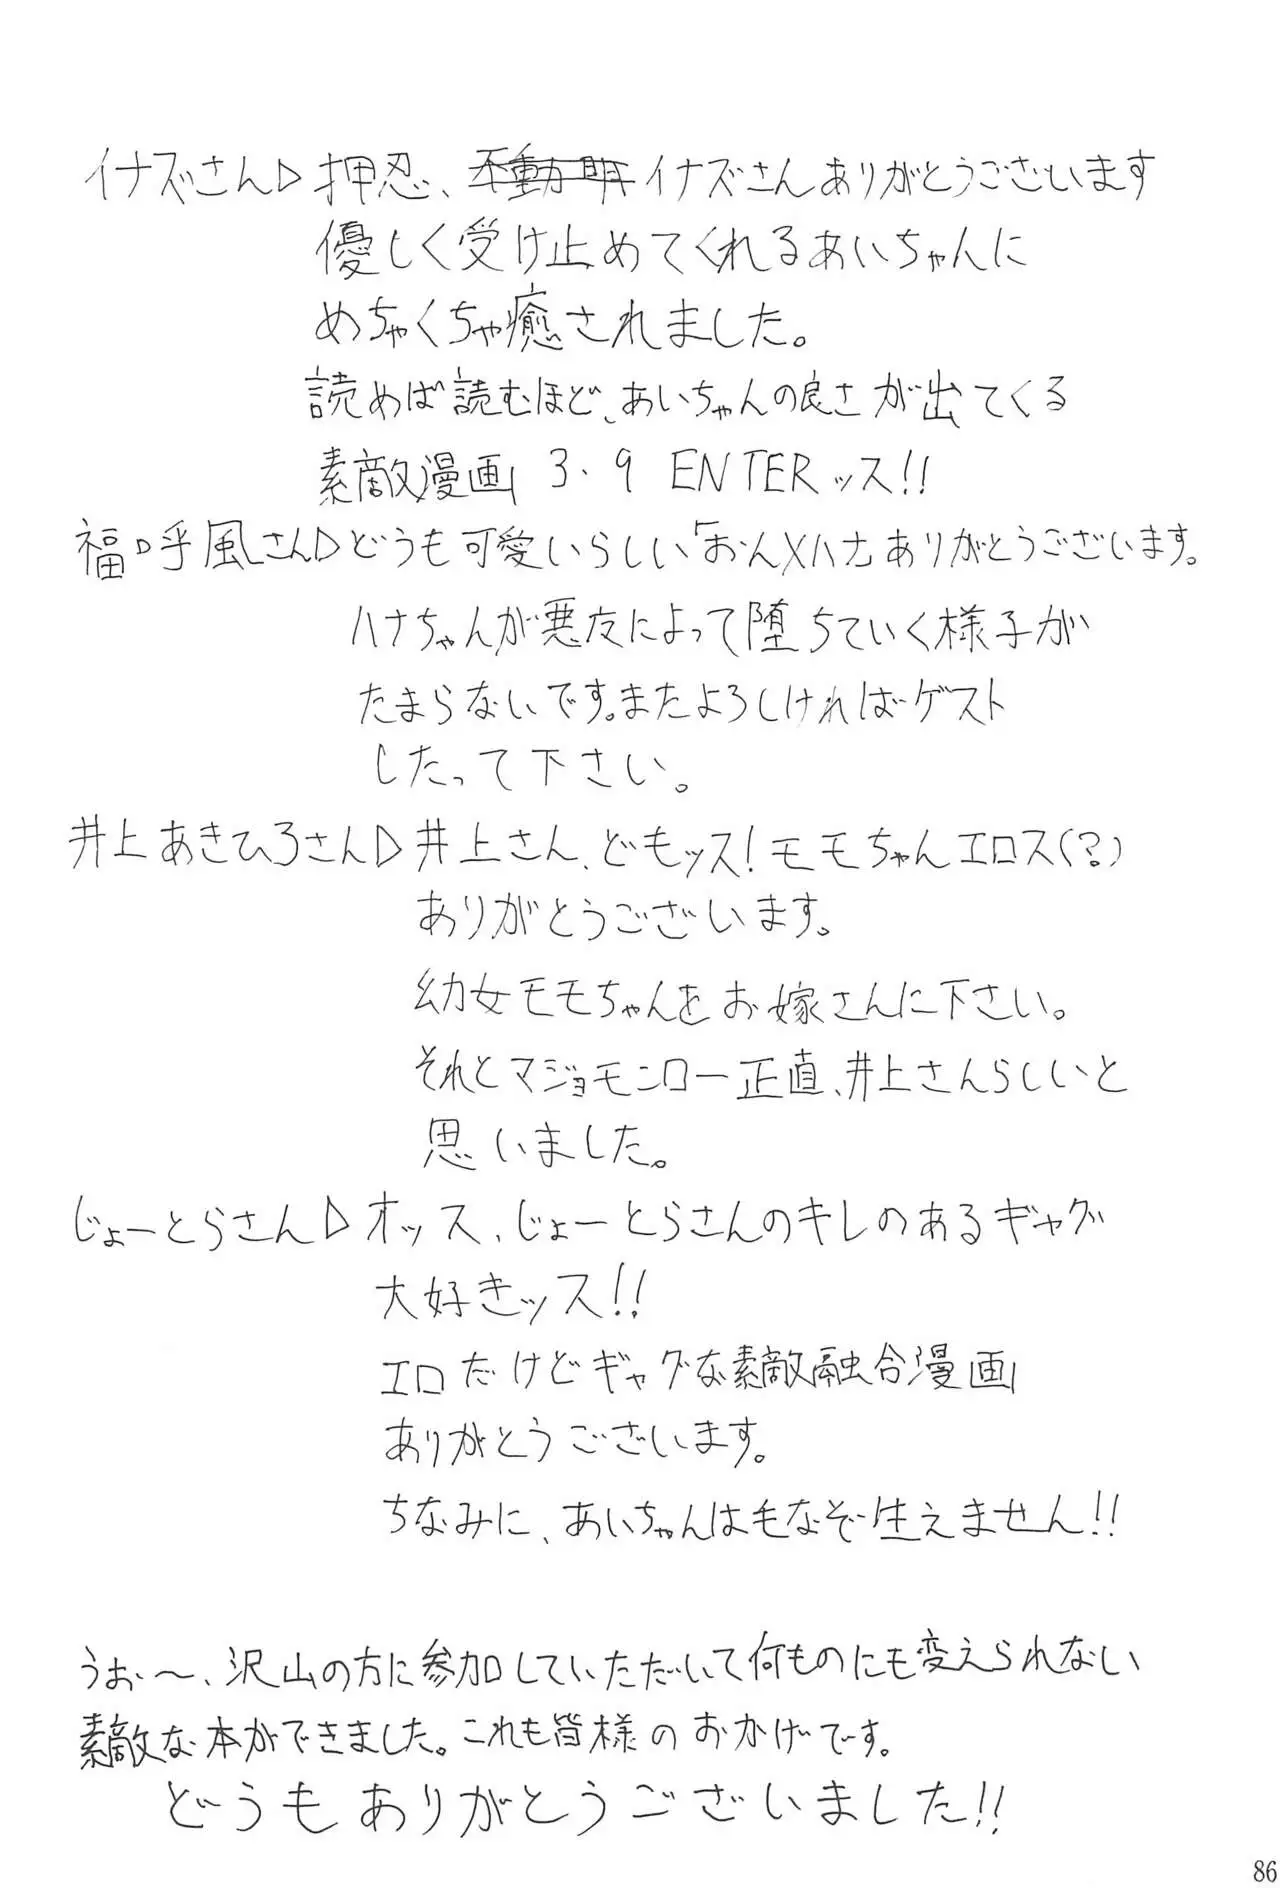 イナズさん▷押忍、不動明イナズさんありがとうございます
優しく受け止めてくれるあいちゃんに
めちゃくちゃ癒されました。
読めば読むほど、あいちゃんの良さが出てくる
素敵漫画 3・9 ENTERッス!!
福ロ呼風さん▷どうも可愛いらしい「おん×ハナ」ありがとうございます。
ハナちゃんが悪友によって堕ちていく様子が
たまらないです。またよろしければゲスト
したって下さい。
井上あきひろさん▷井上さん、どもッス!モモちゃんエロス(?)
ありがとうございます。
幼女モモちゃんをお嫁さんに下さい。
それとマジョモンロー正直、井上さんらしいと
思いました。
じょーとらさん▷オッス、じょーとらさんのキレのあるギャグ
大好きッス!!
エロだけどギャグな素敵融合漫画
ありがとうございます。
ちなみに、あいちゃんは毛なぞ生えません!!
うぉ〜、沢山の方に参加していただいて何ものにも変えられない
素敵な本ができました。これも皆様のおかげです。
どうもありがとうございました!!
86